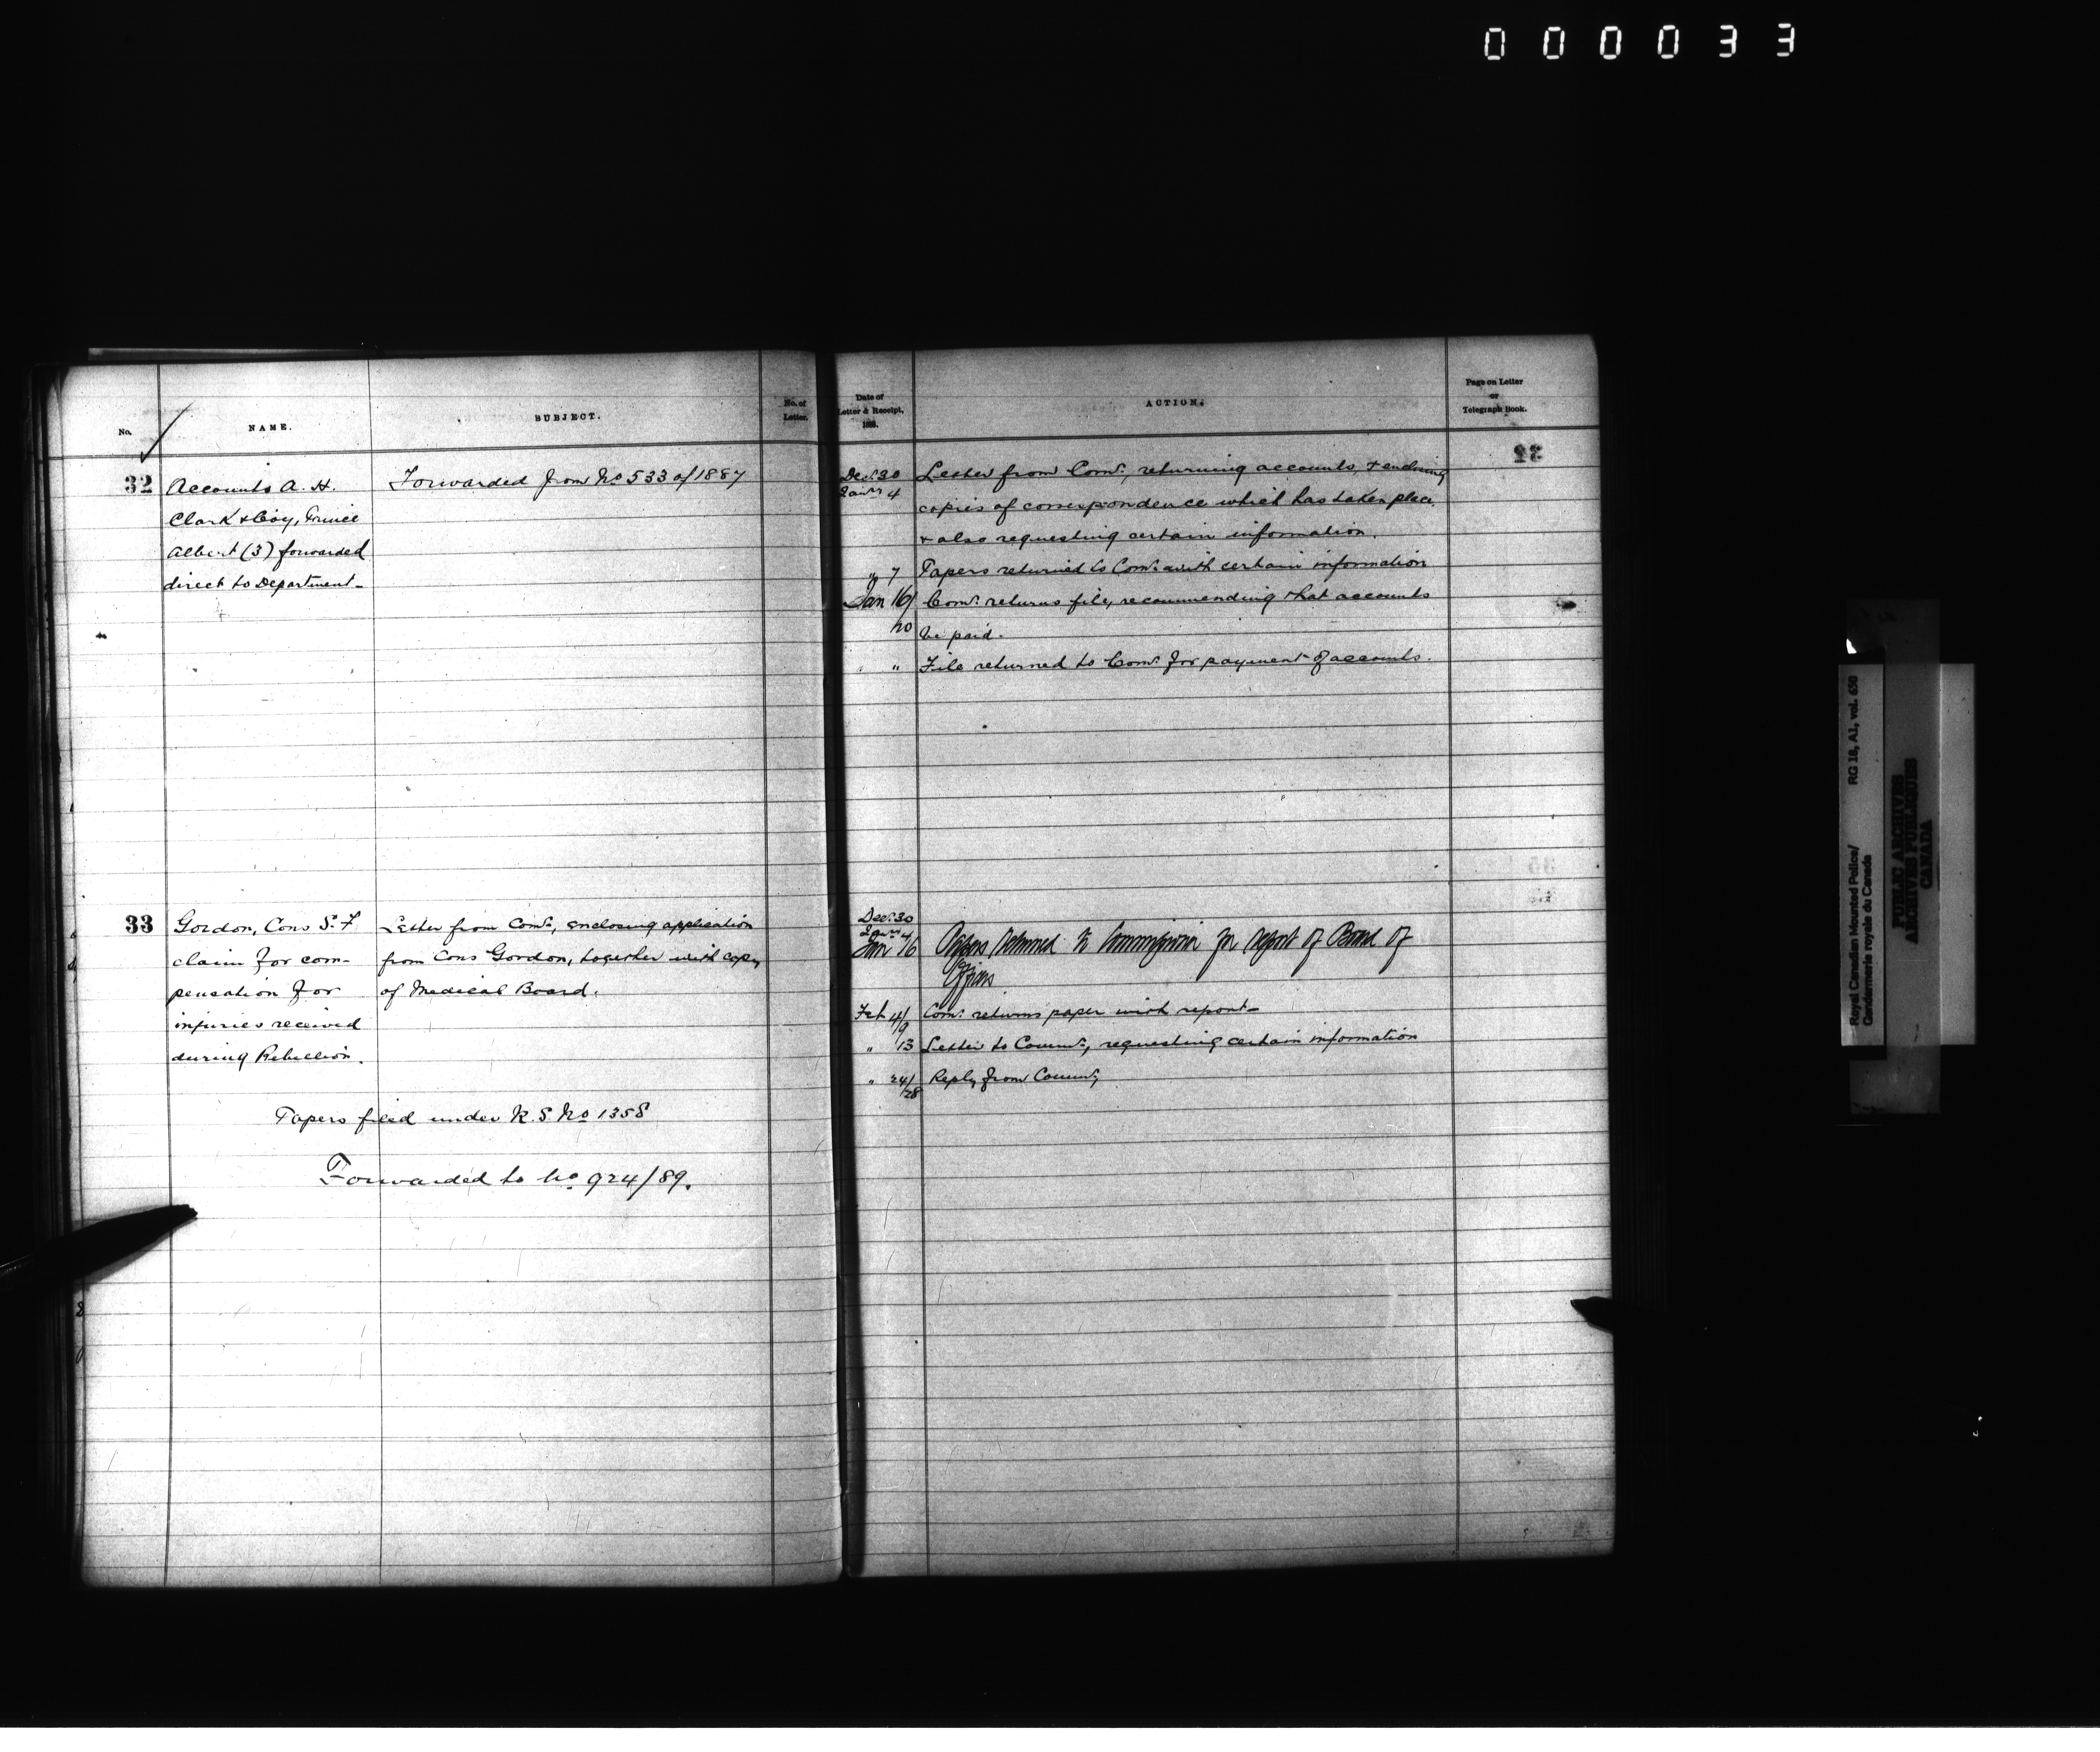 000033
No.
NAME.
SUBJECT.
No. of
Letter.
32
Accounts A. H.
Clark & Coy, Prince
Albert (3) forwarded
direct to Department-
Forwarded from No 533 of 1887
33
Gordon, Cons S. F
claim for com-
pensation for
injuries received
during Rebellion.
Letter from Comr, enclosing application
from Cons Gordon, together with copy
of Medical Board.
Papers filed under R. S. No 1358
Forwarded to No 924/89.
Date of
Letter & Receipt,
188.
ACTION.
Page on Letter
or
Telegraph Book.
Decr 30
Janry 4
Letter from Comr, returning accounts, & enclosing
copies of correspondence which has taken place
& also requesting certain information.
" 7 Papers returned to Comr with certain information
Jan 16/ Comr returns file, recommending that accounts
20 be paid.
" " File returned to Comr for payment of accounts.
Decr 30
Janry 4
Jan 16 Papers returned to Commissioner for report of Board of
Officers
Feb 4/9 Comr returns paper with report-
" 13 Letter to Commr, requesting certain information
" 24/28 Reply from Commr
Royal Canadian Mounted Police/ RG 18, A1, vol. 650
Gendarmerie royale du Canada
PUBLIC ARCHIVES
ARCHIVES PUBLIQUES
CANADA